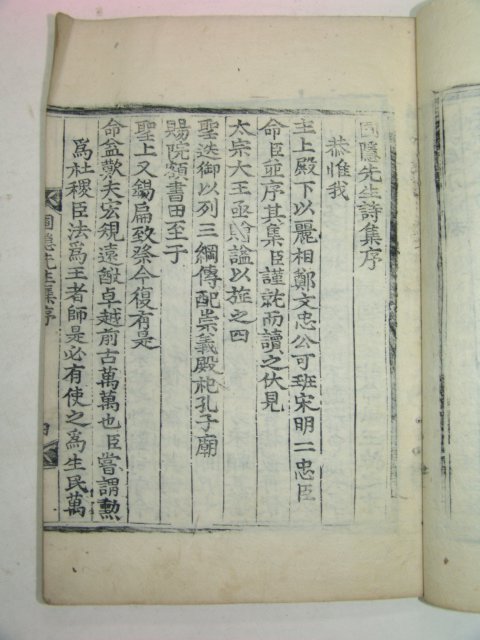 圃隱先生詩集序
恭惟我
主上殿下以麗相鄭文忠公可班宋明二忠臣
命臣並序其集臣謹詵而讀之伏見
太宗大王亟贈謚以旌之四
聖迭御以列三綱傳配崇義殿祀孔子廟
賜院額書田至于
聖上又錫扁致祭今復有是
命益歎夫宏規遠猷卓越前古萬萬也臣嘗謂勳
爲社稷臣法爲王者師是必有使之爲生民萬
圃隱先生集序